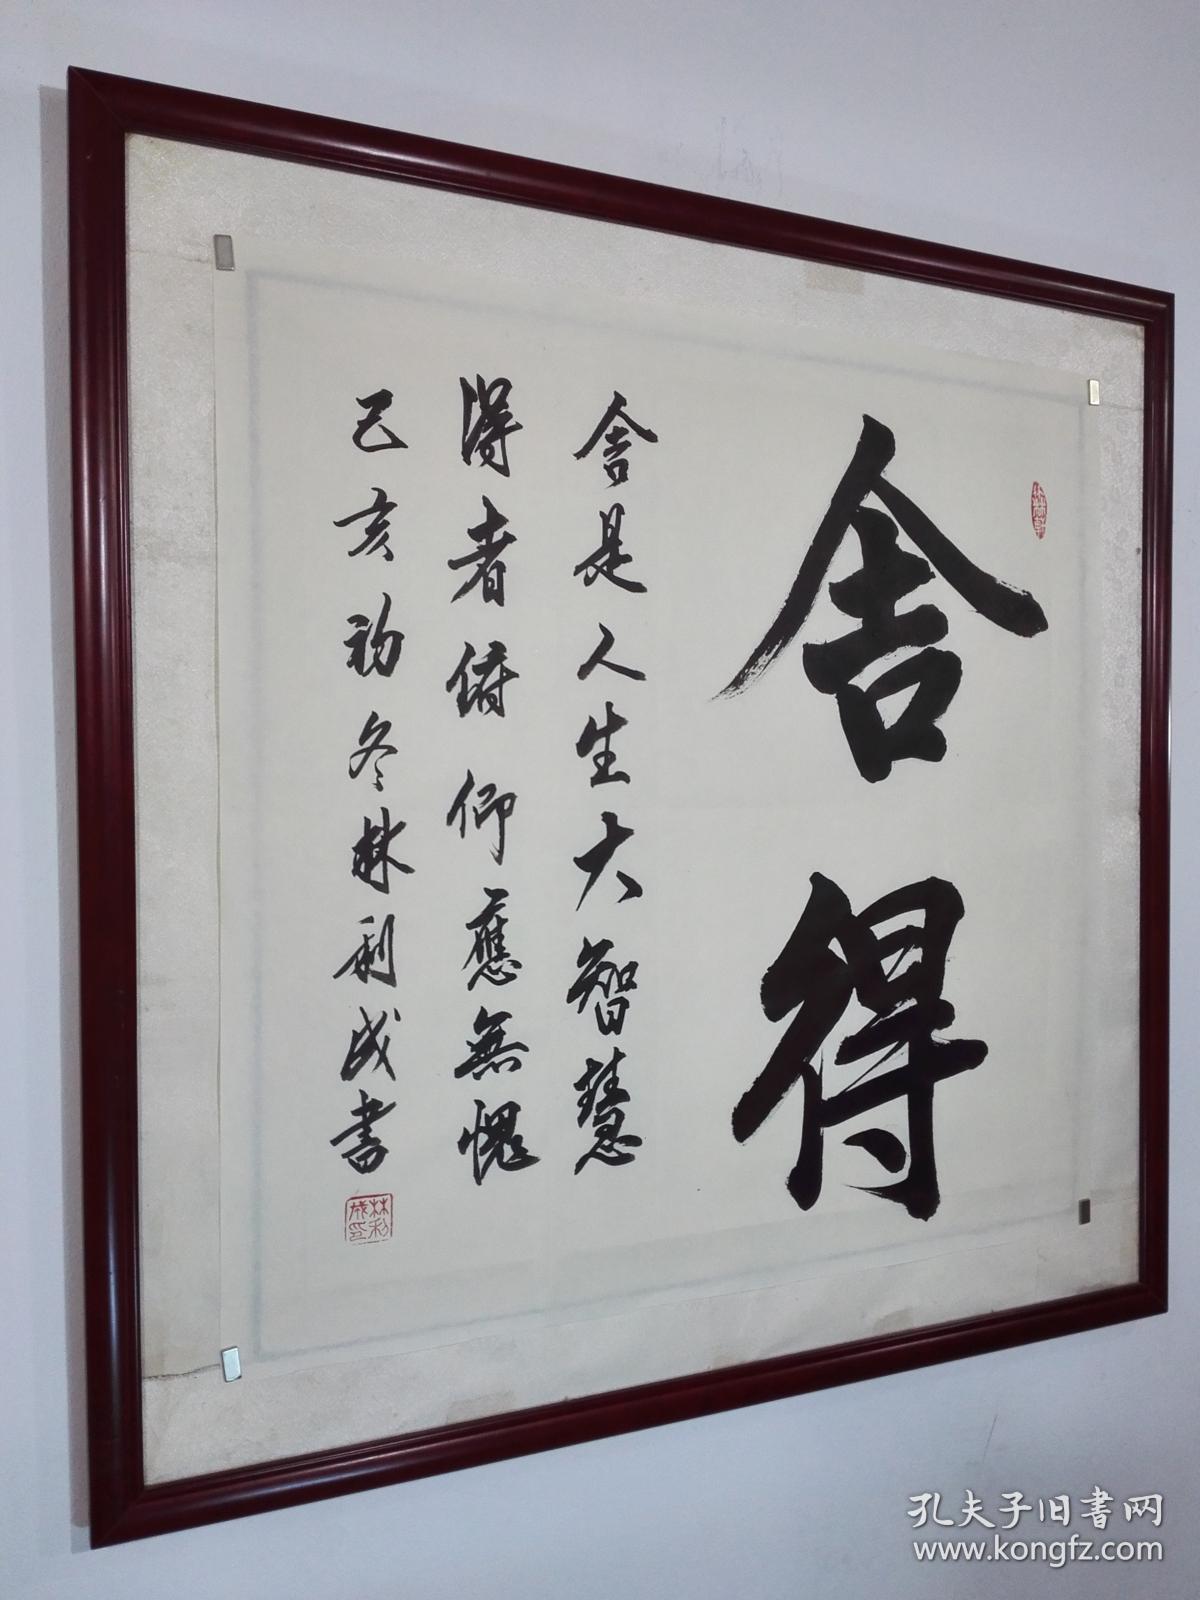 舍得
舍是人生大智慧
得者俯仰應無愧
己亥初冬林利成書
林利成印
孔夫子旧書网
www.kongfz.com